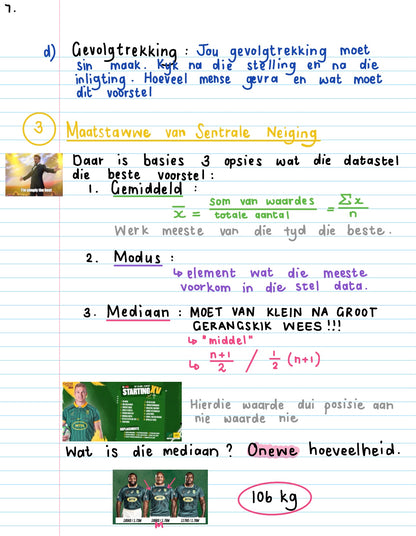 7.
d) Gevolgtrekking : Jou gevolgtrekking moet
sin maak. Kyk na die stelling en na die
inligting. Hoeveel mense gevra en wat moet
dit voorstel
3 Maatstawwe van Sentrale Neiging
Daar is basies 3 opsies wat die datastel
die beste voorstel :
I'm simply the best
1. Gemiddeld :
x̄ = som van waardes / totale aantal = Σx / n
Werk meeste van die tyd die beste.
2. Modus :
↳ element wat die meeste
voorkom in die stel data.
3. Mediaan : MOET VAN KLEIN NA GROOT
GERANGSKIK WEES !!!
↳ "middel"
↳ n+1 / 2 / 1/2 (n+1)
STARTING XV
REPLACEMENTS
MTN
Hierdie waarde dui posisie aan
nie waarde nie
Wat is die mediaan ? Onewe hoeveelheid.
106 kg
M